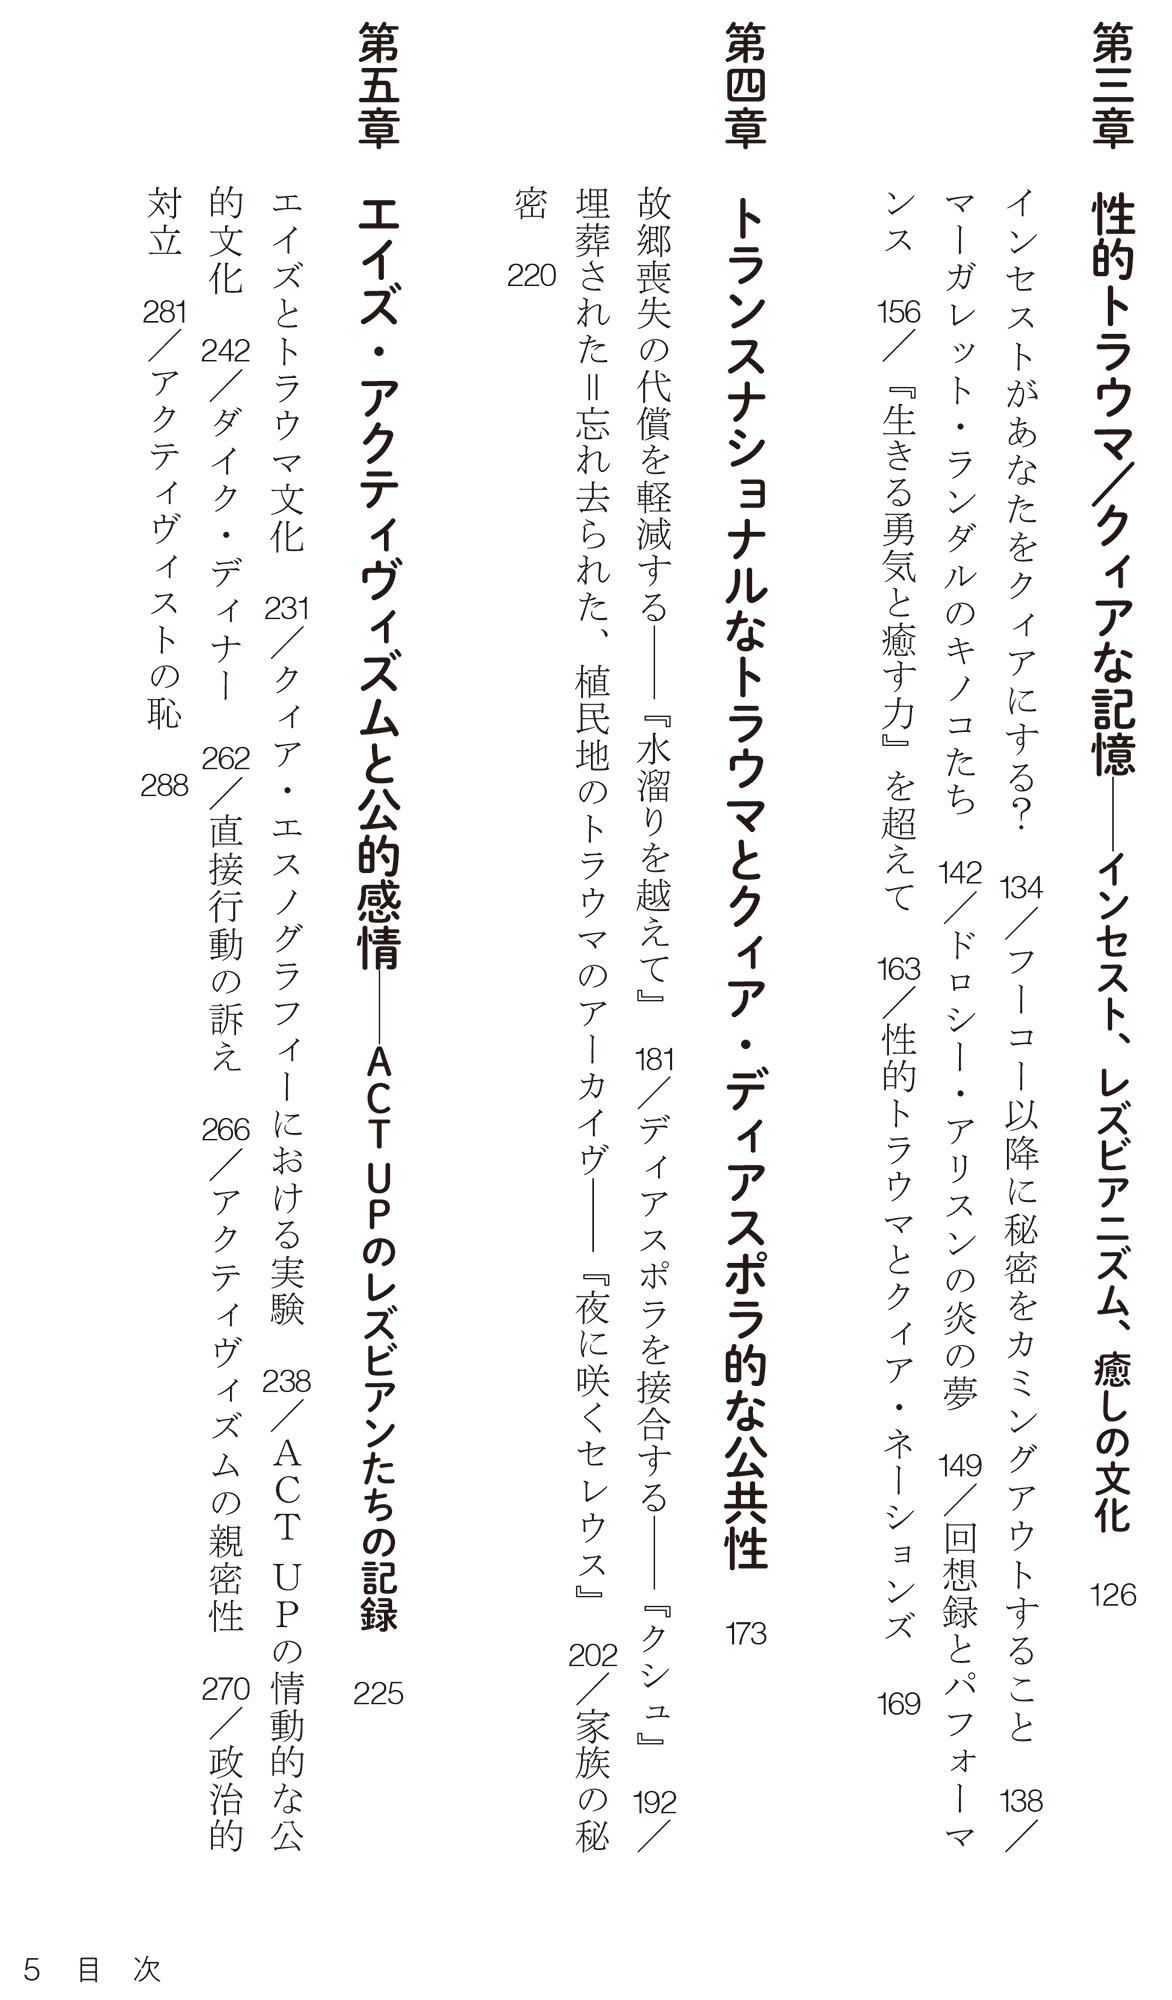 第三章　性的トラウマ／クィアな記憶――インセスト、レズビアニズム、癒しの文化　126
インセストがあなたをクィアにする？　134／フーコー以降に秘密をカミングアウトすること　138／
マーガレット・ランダルのキノコたち　142／ドロシー・アリスンの炎の夢　149／回想録とパフォーマ
ンス　156／『生きる勇気と癒す力』を超えて　163／性的トラウマとクィア・ネーションズ　169
第四章　トランスナショナルなトラウマとクィア・ディアスポラ的な公共性　173
故郷喪失の代償を軽減する――『水溜りを越えて』　181／ディアスポラを接合する――『クシュ』　192／
埋葬された＝忘れ去られた、植民地のトラウマのアーカイヴ――『夜に咲くセレウス』　202／家族の秘
密　220
第五章　エイズ・アクティヴィズムと公的感情――ACT UPのレズビアンたちの記録　225
エイズとトラウマ文化　231／クィア・エスノグラフィーにおける実験　238／ACT UPの情動的な公
的文化　242／ダイク・ディナー　262／直接行動の訴え　266／アクティヴィズムの親密性　270／政治的
対立　281／アクティヴィストの恥　288
5　目　次